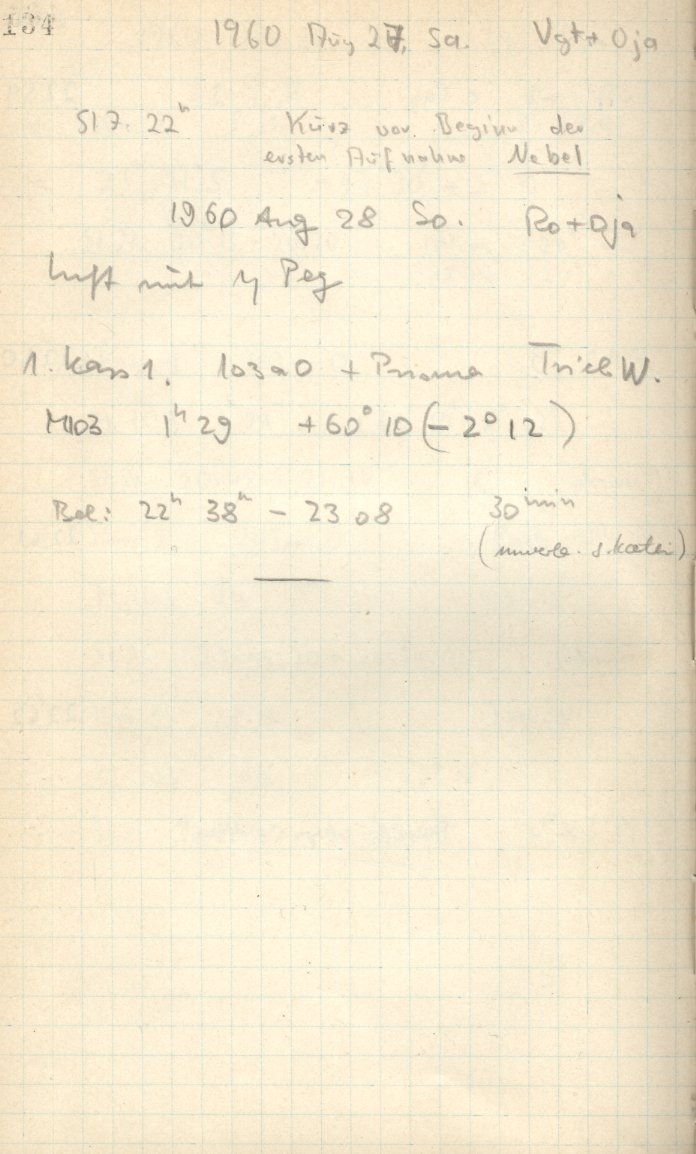 134
1960 Aug 27, Sa. Vgt + Oja
StZ. 22ʰ Kurz vor Beginn der
ersten Aufnahme Nebel
1960 Aug 28 So. Ro + Oja
Luft mit η Peg
1. Kass 1. 103aO + Prisma W.
M103 1ʰ 29 +60° 10 (-2° 12)
Bel: 22ʰ 38ᵐ - 23 08 30ᵐⁱⁿ